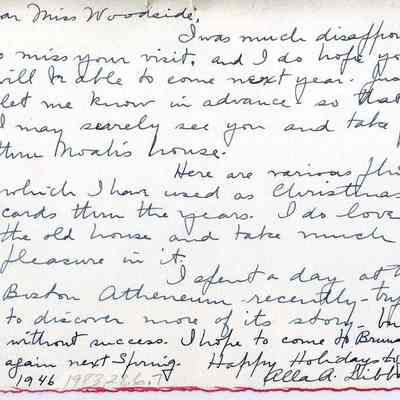 ar Miss Woodside,
I was much disappo
o miss your visit, and I do hope yo
will be able to come next year.
let me know in advance so that
I may surely see you and take
thru Noah's house.
Here are various
which I have used as Christmas
cards thru the years. I do love
the old house and take much
pleasure in it.
I spent a day at t
Boston Atheneum recently - try
to discover more of its story - bu
without success. I hope to come to Bruns
again next Spring. Happy Holidays to
1946 1983.26.6.7 Alla A. Libb